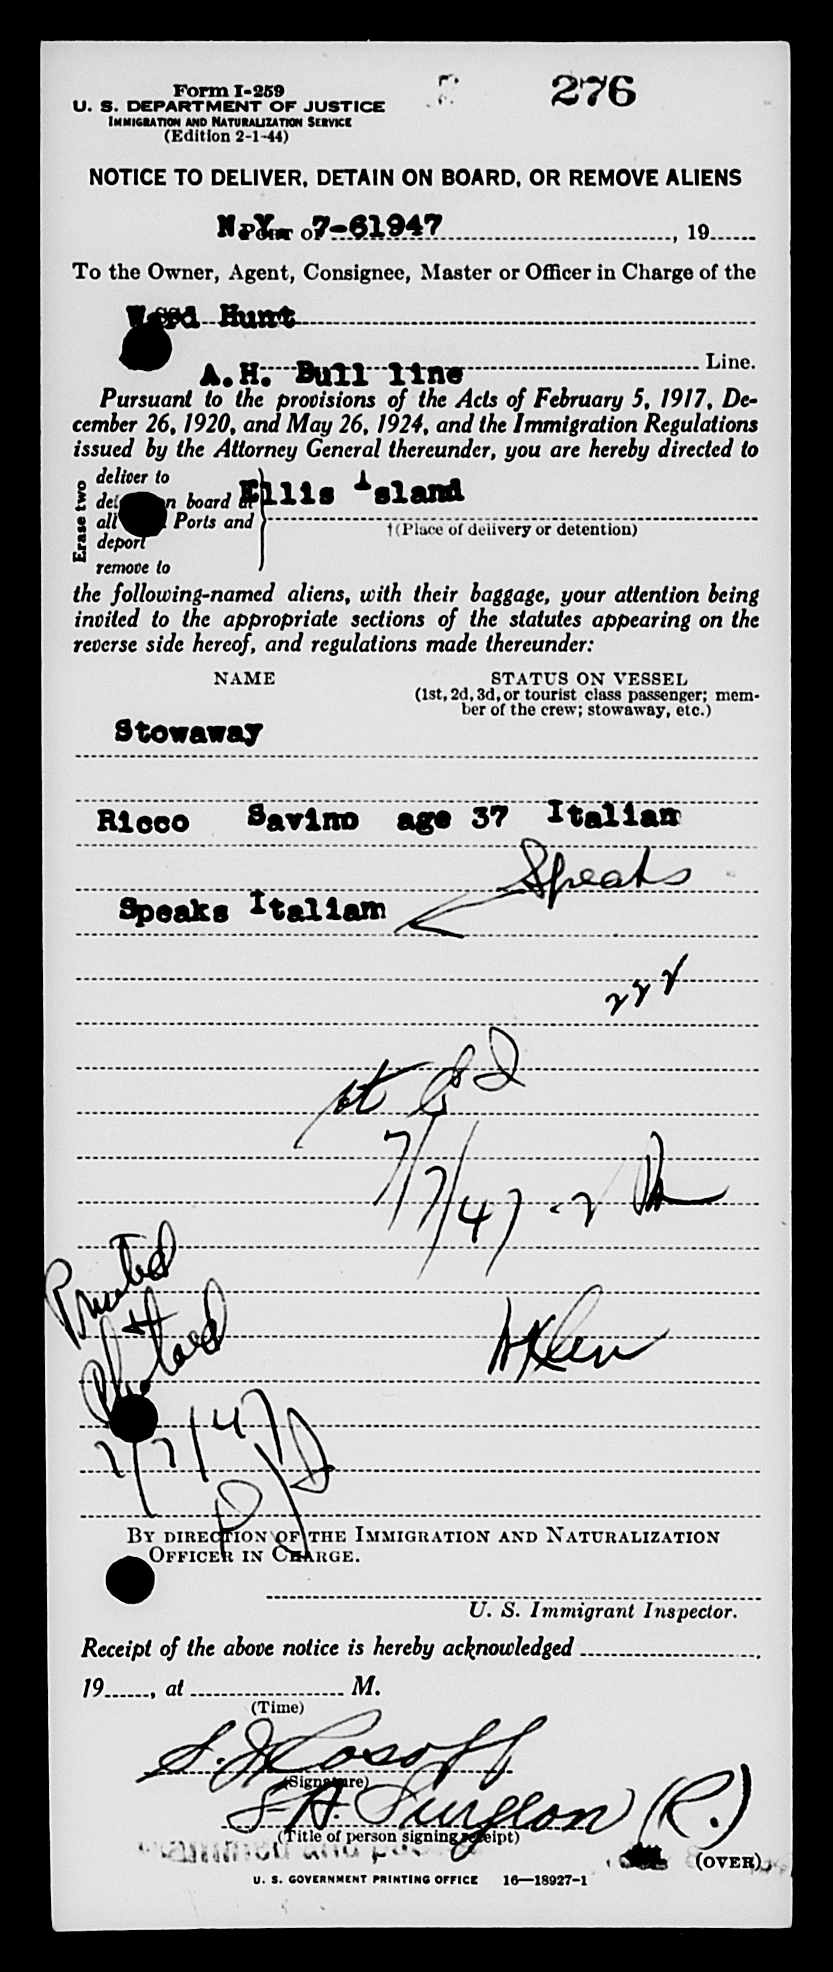 Form I-259
276
U. S. DEPARTMENT OF JUSTICE
IMMIGRATION AND NATURALIZATION SERVICE
(Edition 2-1-44)
NOTICE TO DELIVER, DETAIN ON BOARD, OR REMOVE ALIENS
N.Y. Port of 7-61947, 19
To the Owner, Agent, Consignee, Master or Officer in Charge of the
Ward Hunt
A.H. Bull line Line.
Pursuant to the provisions of the Acts of February 5, 1917, De-
cember 26, 1920, and May 26, 1924, and the Immigration Regulations
issued by the Attorney General thereunder, you are hereby directed to
Erase two
deliver to
board at Ellis Island
all Ports and
†(Place of delivery or detention)
deport
remove to
the following-named aliens, with their baggage, your attention being
invited to the appropriate sections of the statutes appearing on the
reverse side hereof, and regulations made thereunder:
NAME
STATUS ON VESSEL
(1st, 2d, 3d, or tourist class passenger; mem-
ber of the crew; stowaway, etc.)
Stowaway
Ricco Savino age 37 Italian
Speaks
Speaks Italiam
7/7/47
Printed
7/7/47
BY DIRECTION OF THE IMMIGRATION AND NATURALIZATION
OFFICER IN CHARGE.
U. S. Immigrant Inspector.
Receipt of the above notice is hereby acknowledged
19, at M.
(Time)
S. J. Rosoff
(Signature)
S A. Surgeon (R.)
(Title of person signing receipt)
(OVER)
U. S. GOVERNMENT PRINTING OFFICE 16—18927-1